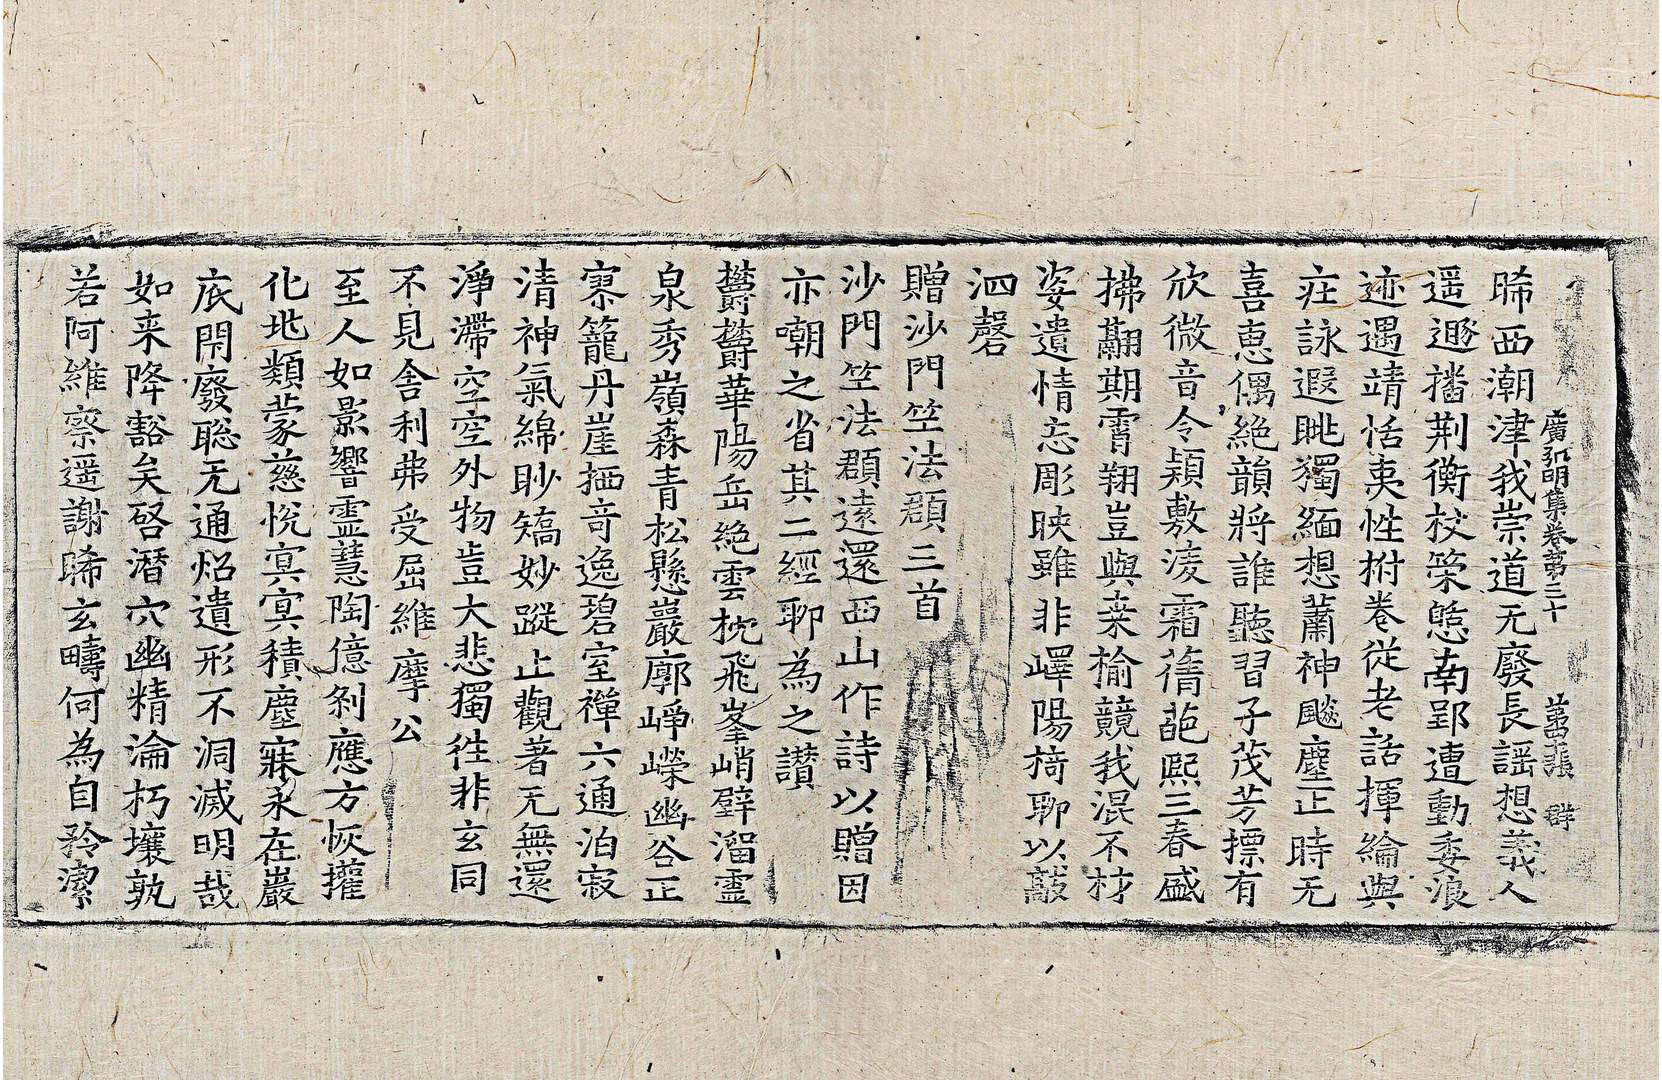 廣弘明集卷第三十 張 群
晞西潮津我崇道无廢長謡想義人
遥遥遯播荆衡杖䇿愬南郢遭動委浪
迹遇靖恬夷性拊卷従老話揮綸與
荘詠遐眺獨緬想蕭神飈塵正時无
喜恵偶絶韻將誰聽習子茂芳摽有
欣微音令穎敷淩霜蒨葩熙三春盛
拂翮期霄翔豈與桒榆競我混不材
姿遺情忘彫映雖非嶧陽椅聊以敲
泗磬
贈沙門竺法頵三首
沙門竺法頵逺還西山作詩以贈因
亦嘲之省其二經聊為之讃
欝欝華陽岳絶雲抗飛峯峭壁溜霊
泉秀嶺森青松懸巖廓崢嶸幽谷正
寥籠丹崖栖竒逸碧室禪六通泊寂
清神氣綿眇矯妙蹤止觀著无無還
淨滯空空外物豈大悲獨徃非玄同
不見舎利弗受屈維摩公
至人如影響霊慧陶億剎應方恢攉
化兆類蒙慈恱冥冥積塵寐永在巖
底閇廢聡无通炤遺形不洞滅明哉
如来降豁矣啓潜穴幽精淪朽壤孰
若阿維察遥謝晞玄疇何為自矜潔